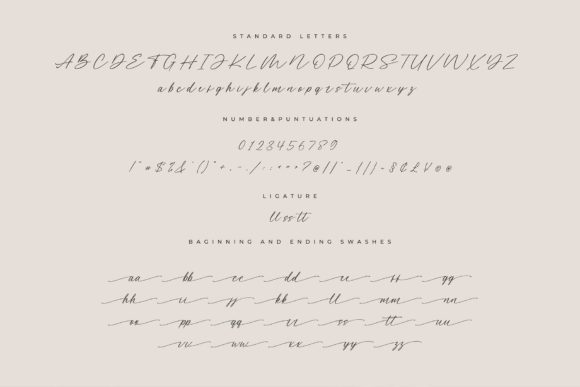 STANDARD LETTERS
ABCDEFGHIJKLMNOPQRSTUVWXYZ
abcdefghijklmnopqrstuvwxyz
NUMBER&PUNTUATIONS
0123456789
LIGATURE
ll ss tt
BAGINNING AND ENDING SWASHES
aa bb cc dd ee ff gg
hh ii jj kk ll mm nn
oo pp qq rr ss tt uu
vv ww xx yy zz